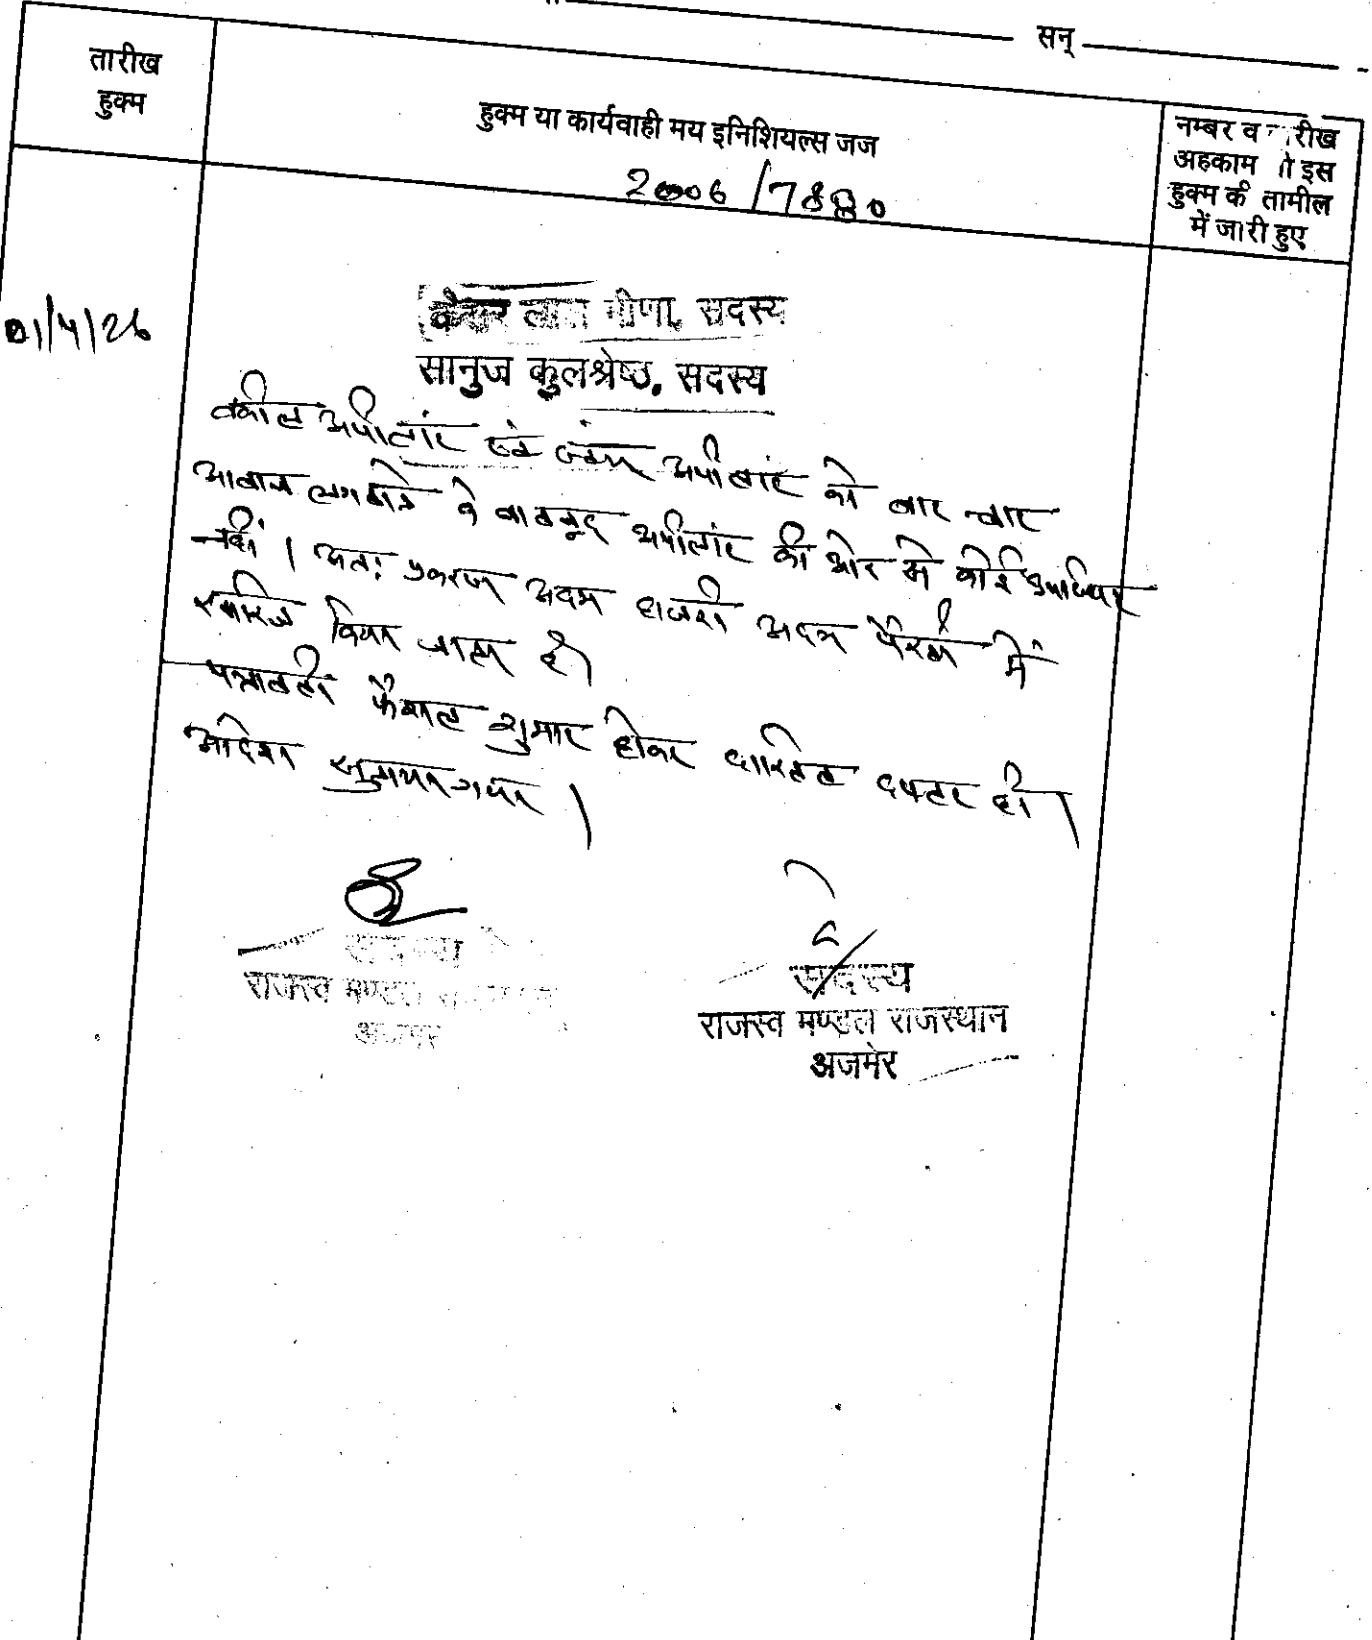 सन्
तारीख
हुक्म
हुक्म या कार्यवाही मय इनिशियल्स जज
2006/7880
नम्बर व तारीख
अहकाम जो इस
हुक्म की तामील
में जारी हुए
01/4/26
लाल मीणा, सदस्य
सानुज कुलश्रेष्ठ, सदस्य
वकील अपीलांट एवं अपीलांट को बार बार
आवाज लगवाने के बावजूद अपीलांट की ओर से कोई उपस्थित
नहीं। अतः प्रकरण अदम हाजरी अदम पैरवी में
खारिज किया जाता है।
पत्रावली फैसल शुमार होकर दाखिल दफ्तर हो।
आदेश सुनाया गया।
सदस्य
राजस्व मण्डल
सदस्य
राजस्व मण्डल राजस्थान
अजमेर